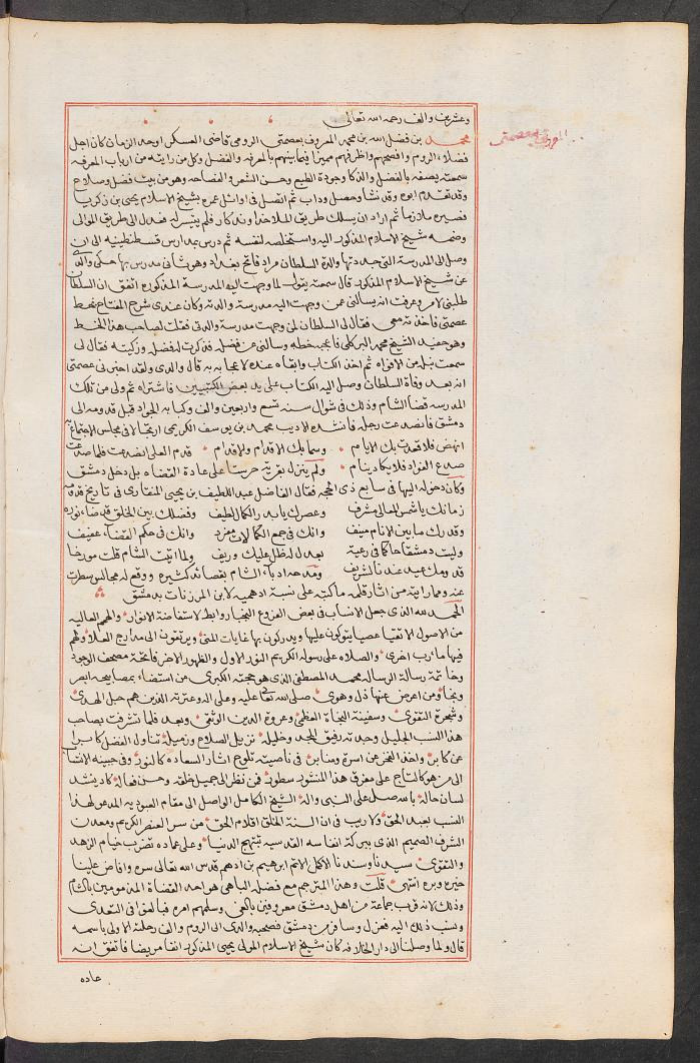 وعشرين والف رحمه الله تعالى
محمد بن فضل الله بن محمد المعروف بعصمتى الرومى قاضى العسكر اوحد الزمان كان اجل
المعروف بعصمتى
فضلاء الروم وافصحهم واظرفهم مميزا فيما بينهم بالمعرفه والفضل وكل من رايته من ارباب المعرفه
سمعته يصفه بالفضل والذكا وجودة الطبع وحسن الشعر والفصاحه وهو من بيت فضل وصلاح
وقد تقدم ابوه وقد نشا وحصل وداب ثم اتصل فى اوائل عمره بشيخ الاسلام يحيى بن زكريا
فصيره ملازما ثم اراد ان يسلك طريق الملاخداوندكار فلم يتيسر له فعدل الى طريق الموالى
وضمه شيخ الاسلام المذكور اليه واستخلصه لنفسه ثم درس بمدارس قسطنطينيه الى ان
وصل الى المدرسة التى جددتها والدة السلطان مراد فاتح بغداد وهو ثانى مدرس بها حكى والدى
عن شيخ الاسلام المذكور قال سمعته يقول لما وجهت اليه المدرسة المذكوره اتفق ان السلطان
طلبنى لامر وعرفت انه يسالنى عمن وجهت اليه مدرسة والدته وكان عندى شرح المفتاح بخط
عصمتى فاخذته معى فقال لى السلطان لمن وجهت مدرسة والدتى فقلت لصاحب هذا الخط
وهو حفيد الشيخ محمد البركلى فاعجبه خطه وسالنى عن فضله فذكرت له فضله وزكيته فقال لى
سمعت بنبل من الاقراء ثم اخذ الكتاب وابقاه عنده لاعجابه به قال والدى ولقد اخبرنى عصمتى
انه بعد وفاة السلطان وصل اليه الكتاب على يد بعض الكتبيين فاشتراه ثم ولى من تلك
المدرسه قضا الشام وذلك فى شوال سنه تسع واربعين والف وكبا به الجواد قبل قدومه الى
دمشق فانصدعت رجله فانشده الاديب محمد بن يوسف الكريمى ارتجالا فى مجلس الاجتماع به
انهض فلا قعدت بك الايام وسما بك الاقدام والاقدام قدم العلى انصدعت فلما صدعت
صدع الفؤاد فلا يكاد ينام ولم ينزل بقرية حرستا على عادة القضاه بل دخل دمشق
وكان دخوله اليها فى سابع ذى الحجه فقال الفاضل عبد اللطيف بن يحيى المنقارى فى تاريخ قدومه
زمانك يا شمس المعالى مشرف وعصرك يا بدر الكمال لطيف وفضلك بين الخلق قد ضاء نوره
وقدرك ما بين الانام منيف وانك فى جمع الكمالات مفرد وانك فى حكم القضاء عفيف
وليت دمشقا حاكما فى رعية بعدل له ظل عليك وريف ولما اتيت الشام قلت مورخا
قدومك عيد عندنا لشريف ومدحه ادباء الشام بقصائد كثيره ووقع له مجالس سطرت
عنه ومما رايته من اثار قلمه ما كتبه على نسبة ادهميه لابن المرزنات بدمشق
الحمد لله الذى جعل الانساب فى بعض الفروع النجبا روابط لاستفاضة الانوار والهمم العاليه
من الاصول الاتقيا عصيا يتوكون عليها ويدركون بها غايات المنى ويرتقون الى مدارج العلا ولهم
فيها مآرب اخرى والصلاه على رسوله الكريم النور الاول والظهور الاخر فاتحة مصحف الوجود
وخاتمة رسالة الرساله محمد المصطفى الذى هو حجته الكبرى من استضاء بمصابيحه ابصر
ونجا ومن اعرض عنها ذل وهوى صلى الله تعالى عليه وعلى اله وعترته الذين هم حبل الهدى
وشجرة التقوى وسفينة النجاة العظمى وعروة الدين الوثقى وبعد فلما تشرفت بصاحب
هذا النسب الجليل وجدته رفيق المجد وخليله نزيل السلاح وزميله تناول الفضل كابرا
عن كابر واخذ الفخر عن اسرة ومنابر فى ناصيته تلوح اثار السعاده كالنور وفى جبينه الانتساب
الى من هو كالتاج على مفرق هذا المنشور سطور فمن نظر الى جميل خلقه وحسن فعاله كاد ينشد
لسان حاله بالله صل على النبى واله الشيخ الكامل الواصل الى مقام العبوديه المدعو لهذا
النسب بعبد الحق ولا ريب فى ان السنة الخلق اقلام الحق من سر العنصر الكريم ومعدن
الشرف الصميم الذى ببركة انفاسه القدسيه تبتهج الدنيا وعلى عماده تضرب خيام الزهد
والتقوى سيدنا وسندنا الاكمل الاتم ابرهيم بن ادهم قدس الله تعالى سره وافاض علينا
خيره وبره انتهى قلت وهذا المترجم مع فضله الباهى هو احد القضاة المذمومين بالشام
وذلك لانه قرب جماعة من اهل دمشق معروفين بالغى وسلمهم امره فبالغوا فى التعدى
ونسب ذلك اليه فعزل وسافر من دمشق فصحبه والدى الى الروم والف رحلته الاولى باسمه
قال ولما وصلنا الى دار الخلافه كان شيخ الاسلام المولى يحيى المذكور انفا مريضا فاتفق انه
عاده